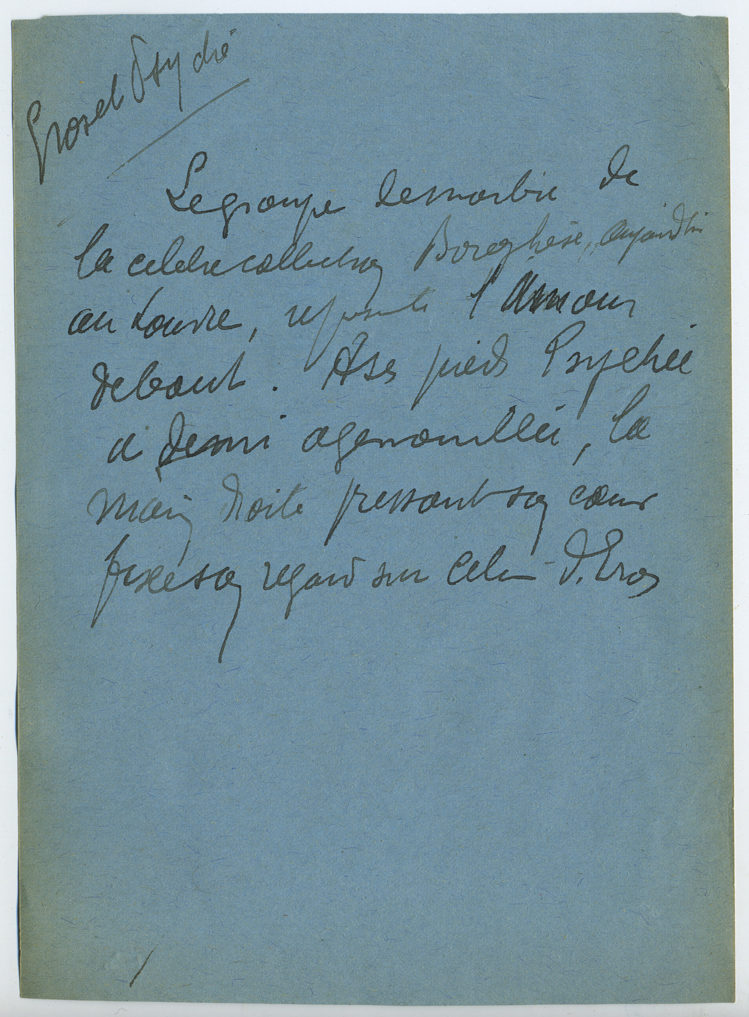 Eros et Psyché
Le groupe de marbre de
la celebre collection Borghèse, aujourd'hui
au Louvre, represente l'Amour
debout. A ses pieds Psychée
a demi agenouillée, la
main droite pressant son cœur
fixe son regard sur celui d'Eros